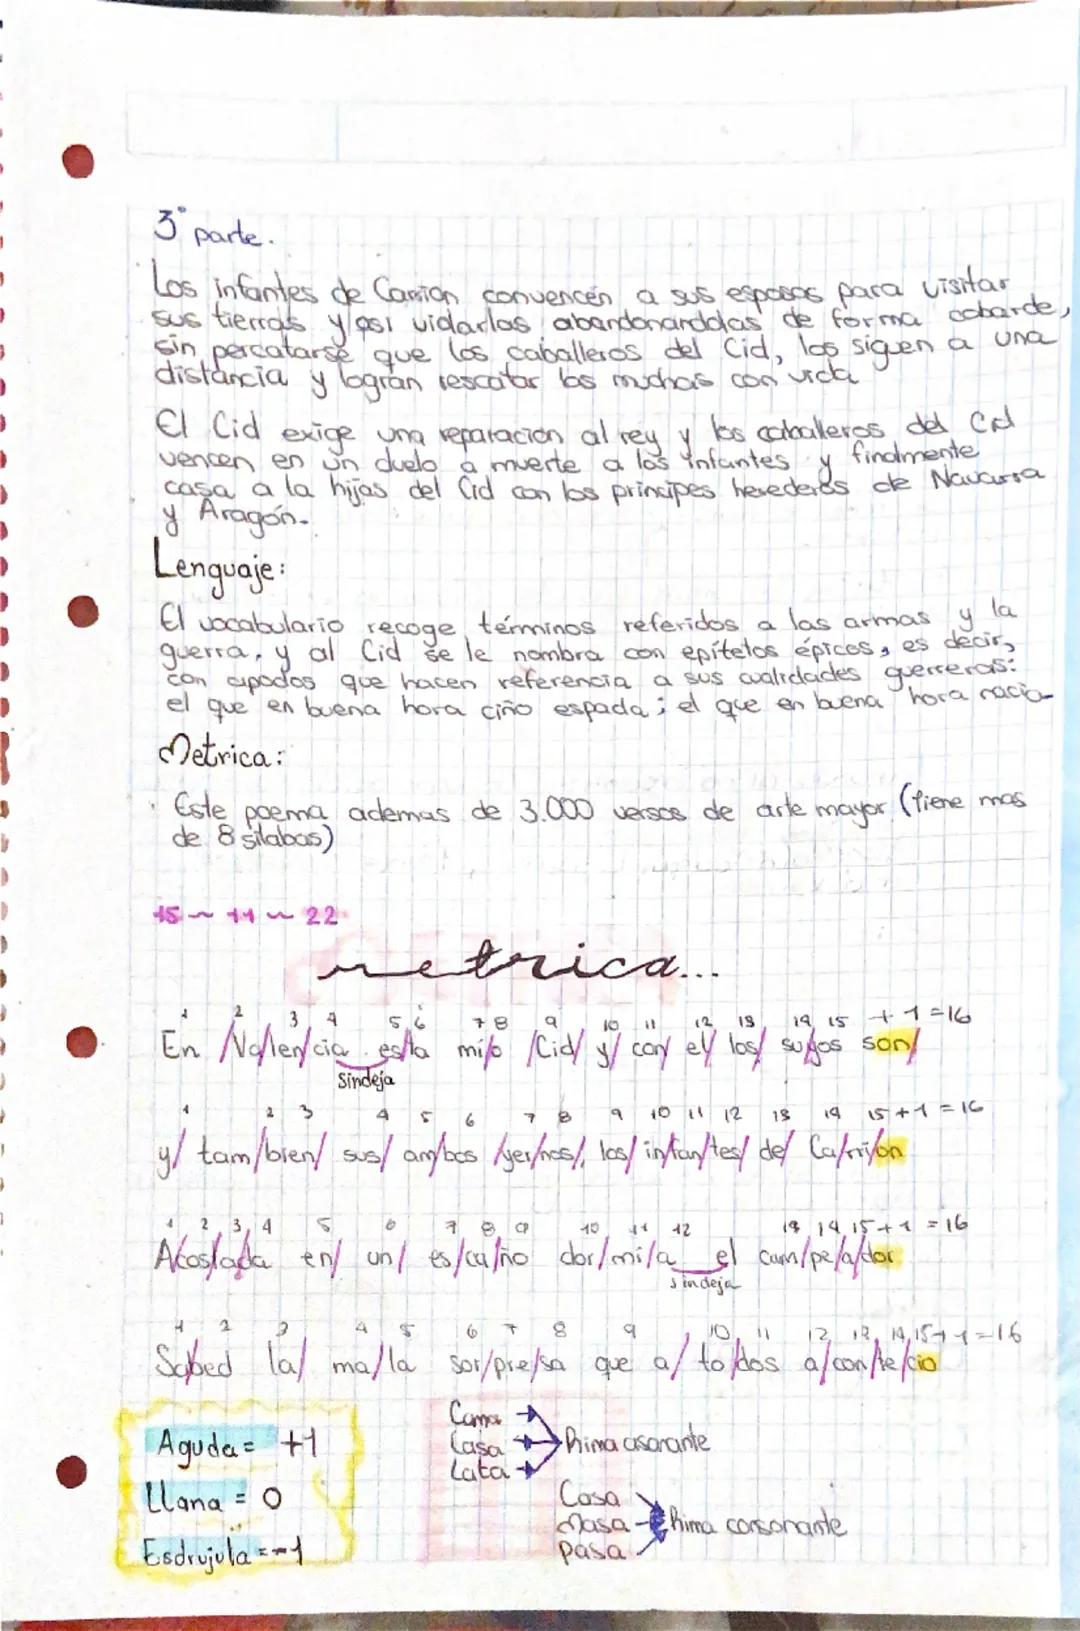 3° parte.
Los infantes de Carrion convencen a sus esposas para visitar
sus tierras y asi vidarlas abandonarddas de forma cobarde,
sin percatarse que los caballeros del Cid, los siguen a una
distáncia y logran rescatar las muchas con vida
El Cid exige una reparacion al rey y los caballeros del Cid
vencen en un duelo a muerte a los infantes y finalmente
casa a la hijas del Cid con los principes herederos de Navarra
y Aragón.
Lenguaje:
El vocabulario recoge términos referidos a las armas y la
guerra, y al Cid se le nombra con epítetos épicos, es decir,
con apodos que hacen referencia a sus cualidades guerreras:
el que en buena hora ciño espada; el que en buena hora nacio
Metrica:
Este poema ademas de 3.000 versos de arte mayor (tiene mas
de 8 silabas)
15 ~ 11 ~ 22
metrica...
1 2 3 4 5 6 7 8 9 10 11 12 13 14 15 + 1 = 16
En /Va/len/cia esta mi/o /Cid/ y/ con/ el/ los/ suyos son/
Sindeja
1 2 3 4 5 6 7 8 9 10 11 12 13 14 15 + 1 = 16
y/ tam/bien/ sus/ am/bos /yer/nos/, los/ in/fan/tes/ de/ Ca/rri/on
1 2 3 4 5 6 7 8 9 10 11 12 13 14 15 + 1 = 16
A/cos/ta/da en/ un/ es/ca/ño dor/mi/a el cam/pe/a/dor
sindeja
1 2 3 4 5 6 7 8 9 10 11 12 13 14 15 + 1 = 16
Sa/bed la/ ma/la sor/pre/sa que a/ to/dos a/con/te/cio
Aguda = +1
Llana = 0
Esdrujula = -1
Cama
Casa
Lata
Rima asonante
Casa
Masa
pasa
Rima consonante